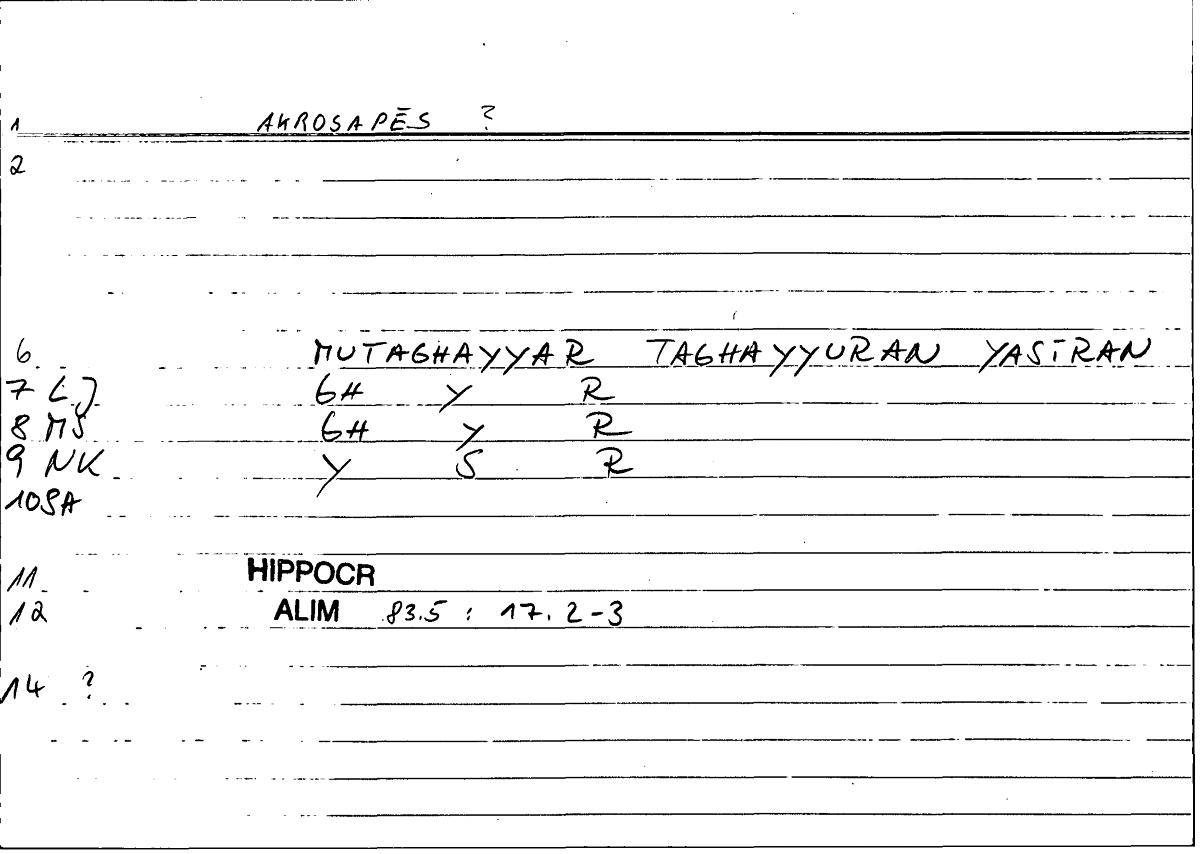 1 AKROSAPĒS ?
2
6 MUTAGHAYYAR TAGHAYYURAN YASĪRAN
7 LJ GH Y R
8 MS GH Y R
9 NK Y S R
10 SA
11 HIPPOCR
12 ALIM 83.5 : 17.2-3
14 ?